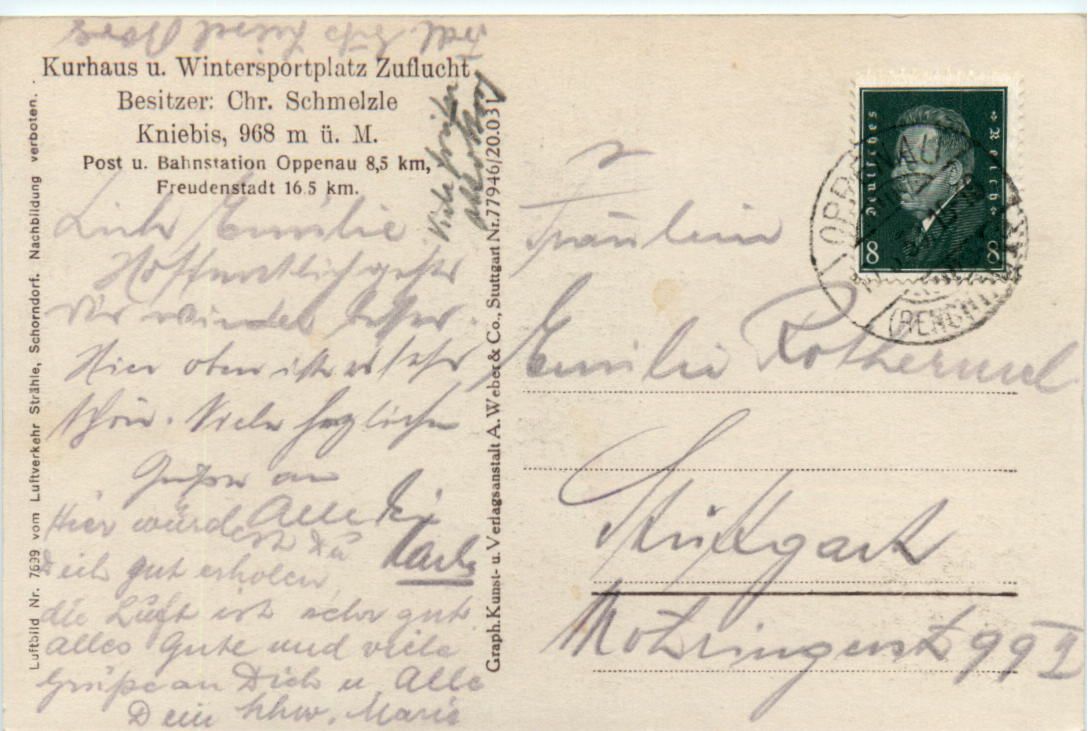 Kurhaus u. Wintersportplatz Zuflucht
Besitzer: Chr. Schmelzle
Kniebis, 968 m ü. M.
Post u. Bahnstation Oppenau 8,5 km,
Freudenstadt 16.5 km.
Luftbild Nr. 7639 vom Luftverkehr Strähle, Schorndorf. Nachbildung verboten.
Liebe Emilie
Hoffentlich geht's
Dir wieder besser.
Hier oben ist es sehr
schön. Viele herzliche
Grüße an
Alle Dein
Karl
Hier würdest Du
Dich gut erholen,
die Luft ist sehr gut.
alles Gute und viele
Grüße an Dich u. Alle
Dein Marie
Viele Grüße
Graph. Kunst- u. Verlagsanstalt A. Weber & Co., Stuttgart Nr. 77946/20.031
Deutsches Reich
8 8
OPPENAU
(RENCHTAL)
Fräulein
Emilie Rothermel
Stuttgart
Möhringerst 99 II